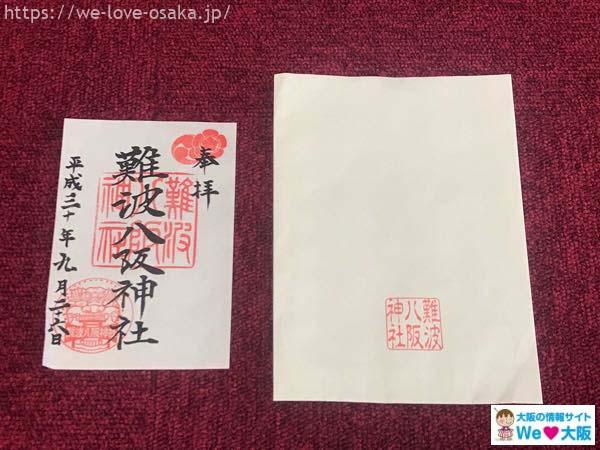 https://we-love-osaka.jp/
奉拝
難波八阪神社
平成三十年九月二十六日
難波
八阪
神社
難波
八阪
神社
大阪の情報サイト
We♥大阪